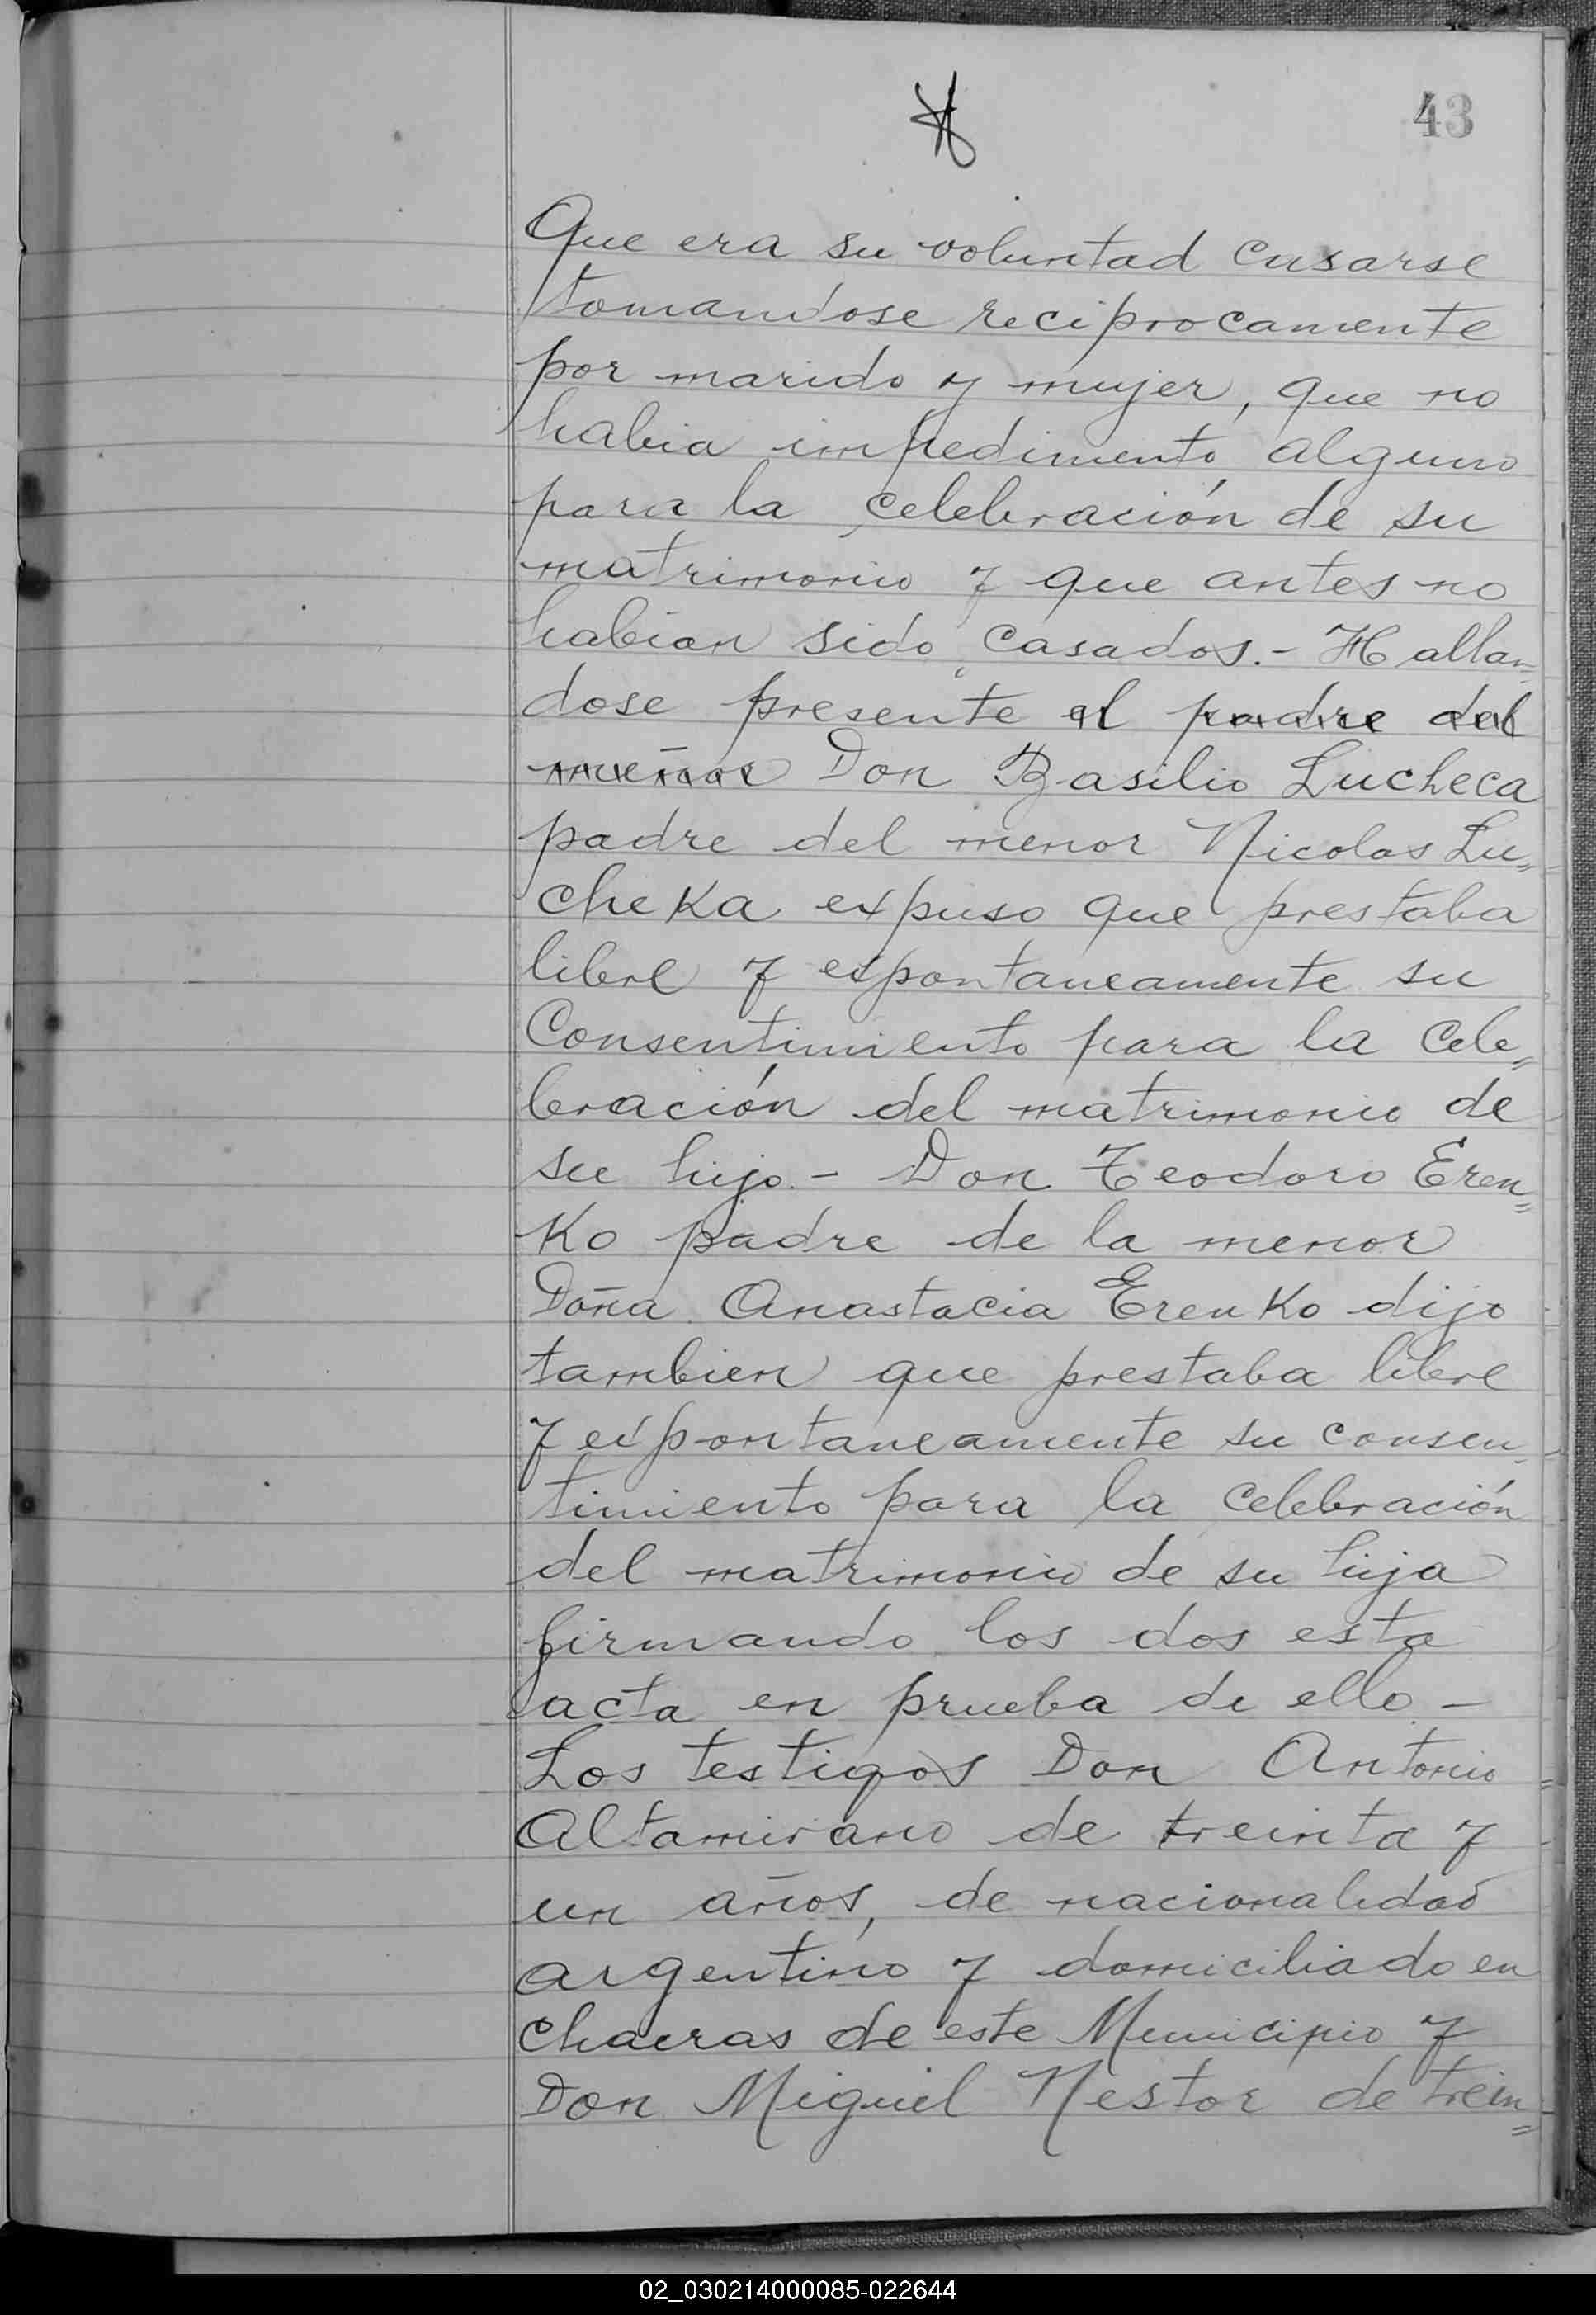 43
Que era su voluntad casarse
tomandose reciprocamente
por marido y mujer, que no
habia impedimento alguno
para la celebración de su
matrimonio y que antes no
habian sido casados.- Hallan=
dose presente el padre del
menor Don Basilio Lucheca
padre del menor Nicolas Lu=
cheKa expuso que prestaba
libre y espontaneamente su
Consentimiento para la Cele=
bración del matrimonio de
su hijo.- Don Teodoro Eren=
Ko padre de la menor
Doña Anastacia ErenKo dijo
tambien que prestaba libre
y espontaneamente su consen=
timiento para la celebración
del matrimonio de su hija
firmando los dos esta
acta en prueba de ello -
Los testigos Don Antonio
Altamirano de treinta y
un años, de nacionalidad
argentino y domiciliado en
Chacras de este Municipio y
Don Miguel Nestor de trein=
02_030214000085-022644